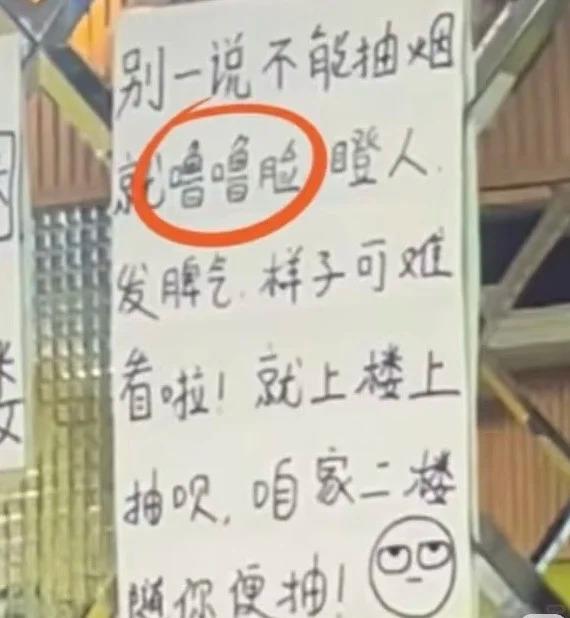 别一说不能抽烟
就噜噜脸瞪人.
发脾气.样子可难
看啦！就上楼上
抽呗，咱家二楼
随你便抽！